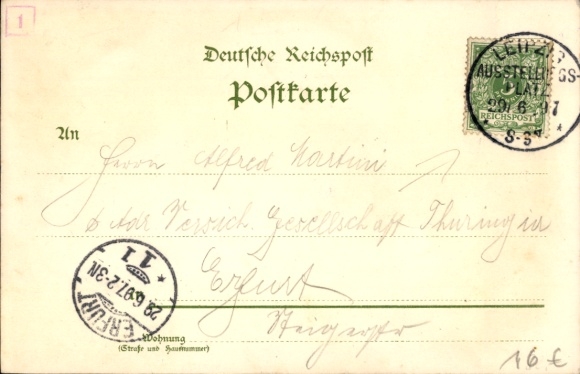 1
Deutsche Reichspost
Postkarte
LEIPZIG
AUSSTELLUNGS-
PLATZ
29 6 97
8-9V
REICHSPOST
An
Herrn Alfred Martini
Adr Versich Gesellschaft Thuringia
Erfurt
Steigerstr
ERFURT
29.6.97.2-3N
11
Wohnung
(Straße und Hausnummer)
16 €